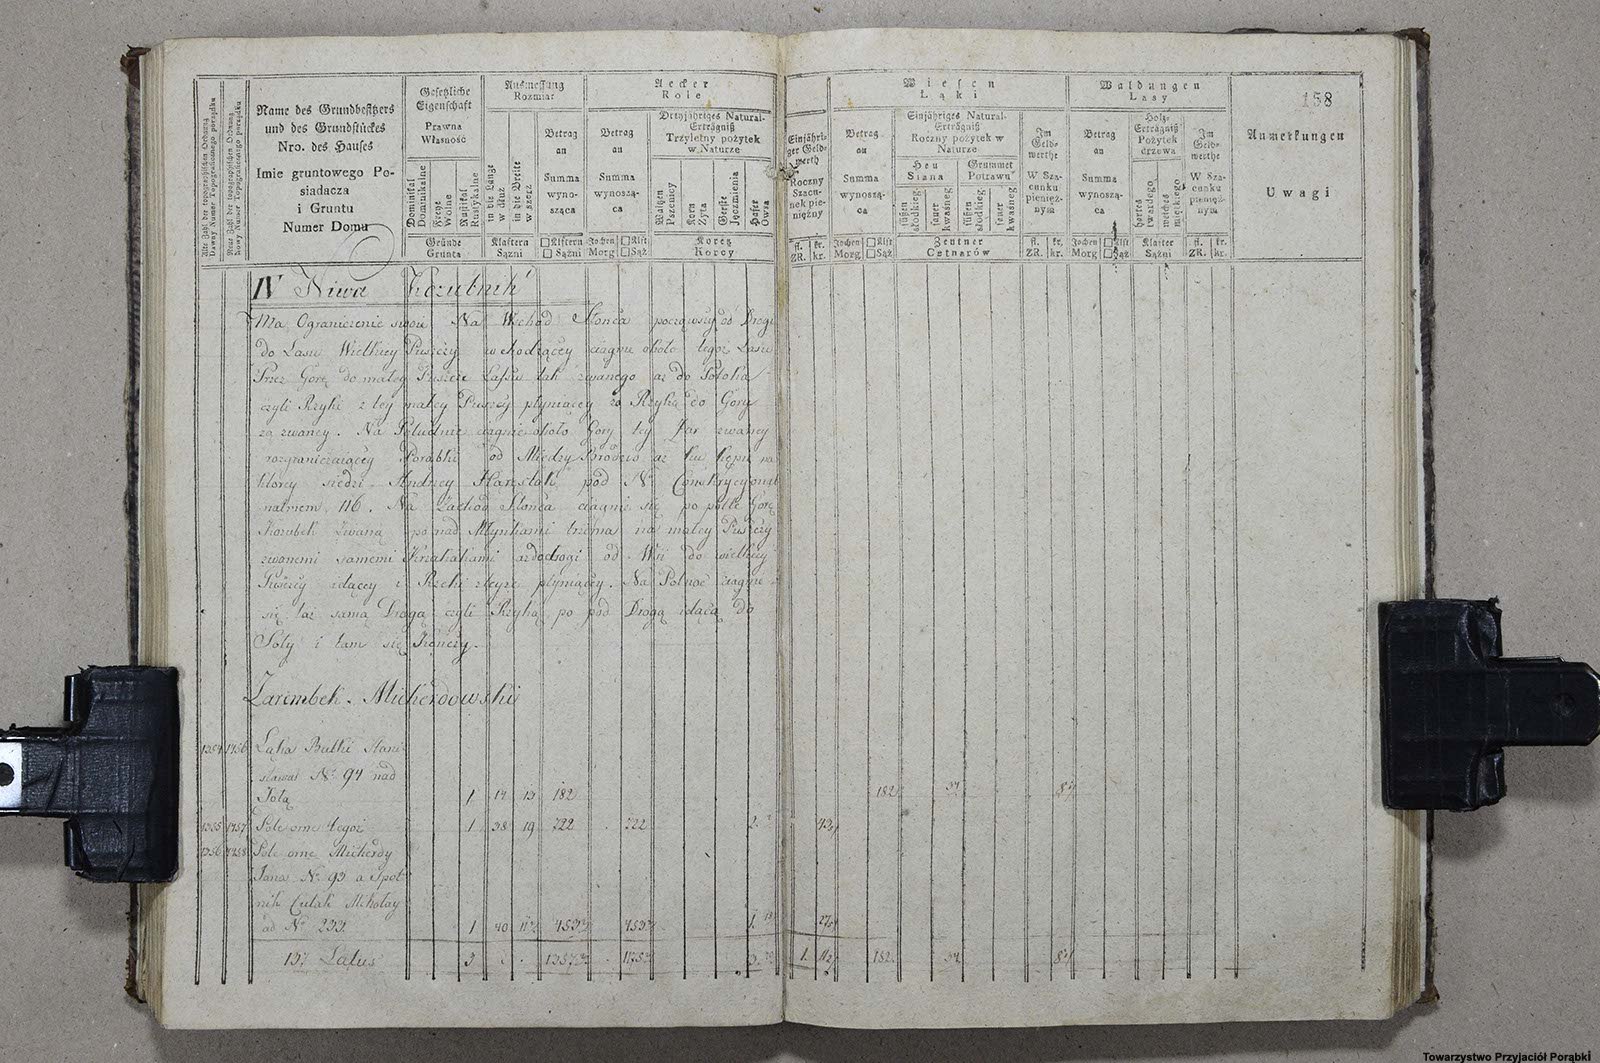 158
Alte Zahl der topographischen Ordnung
Dawny Numer Topograficznego porządku
Neue Zahl der topographischen Ordnung
Nowy Numer Topograficznego porządku
Name des Grundbesitzers
und des Grundstückes
Nro. des Hauses
Imie gruntowego Po-
siadacza
i Gruntu
Numer Domu
Gesetzliche
Eigenschaft
Prawna
Własność
Dominikal
Dominikalne
Freye
Wolne
Rustikal
Rustykalne
Gründe
Grunta
Ausmessung
Rozmiar
in die Länge
w dłuż
in die Breite
w szerz
Klaftern
Sążni
Betrag
an
Summa
wyno-
sząca
□ Klftern
□ Sążni
Aecker
Role
Betrag
an
Summa
wynoszą-
ca
Jochen
Morg
□ Klft
□ Sąż
Dreyjähriges Natural-
Erträgniß
Trzyletny pożytek
w Naturze
Waitzen
Pszenicy
Korn
Żyta
Gerste
Jęczmienia
Hafer
Owsa
Koretz
Korcy
Einjähri-
ger Geld-
werth
Roczny
Szacu-
nek pie-
niężny
fl. kr.
ZR. kr.
Wiesen
Łąki
Betrag
an
Summa
wynoszą-
ca
Jochen
Morg
□ Klft
□ Sąż
Einjähriges Natural-
Erträgniß
Roczny pożytek w
Naturze
Heu
Siana
Grummet
Potrawu
süßen
słodkieg
sauer
kwaśneg
süßen
słodkieg
sauer
kwaśneg
Zentner
Cetnarów
Im
Geld-
werthe
W Sza-
cunku
pienięż-
nym
fl. kr.
ZR. kr.
Waldungen
Lasy
Betrag
an
Summa
wynoszą-
ca
Jochen
Morg
□ Klft
□ Sąż
Holz-
Erträgniß
Pożytek
drzewa
hartes
twardego
weiches
miętkiego
Klafter
Sążni
Im
Geld-
werthe
W Sza-
cunku
pienięż-
nym
fl. kr.
ZR. kr.
Anmerkungen
Uwagi
IV Niwa Kozubnik
Ma Ograniczenie swoie Na Wschód Słońca począwszy od Drogi
do Lasu Wielkiey Puszczy wchodzącey ciągnie około tegoż Lasu
Przez Gorę do małey Puszcze Lassu tak zwanego aż do Potoka
czyli Rzyki z tey małey Puszczy płyniącey za Rzyką do Góry
Zar zwaney. Na Południe ciągnie około Góry tey Zar zwaney
rozgraniczaiącey Porąbki od Między Brodzio aż ku
ktorey siedzi Andrzey pod Nr
116. Na Zachod Słońca ciągnie się po pod te Gorę
zwaną po nad Młynkami trzema na małey Puszczy
zwanemi samemi aż do drogi od Wsi do wielkiey
Puszczy idącey i Rzeki z teyże płyniącey. Na Połnoc ciągnie
się taż samą Drogą czyli Rzyką po pod Drogą idącą do
Soły i tam się kończy.
Zarembek Mickerdowski
1354 1456 Łąka Bułki Stani-
sława Nr 94 nad
Sołą 1 14 13 182 182 8
1355 1457 Pole orne tegoż 1 38 19 722 722 2 43
1356 1458 Pole orne Mickerdy
Jana Nr 93 a Spol-
nik Mikołay
ad Nr 233 1 40 453 453 1 27
137 Latus 3 1357 1175 3 1 11 182 8
Towarzystwo Przyjaciół Porąbki